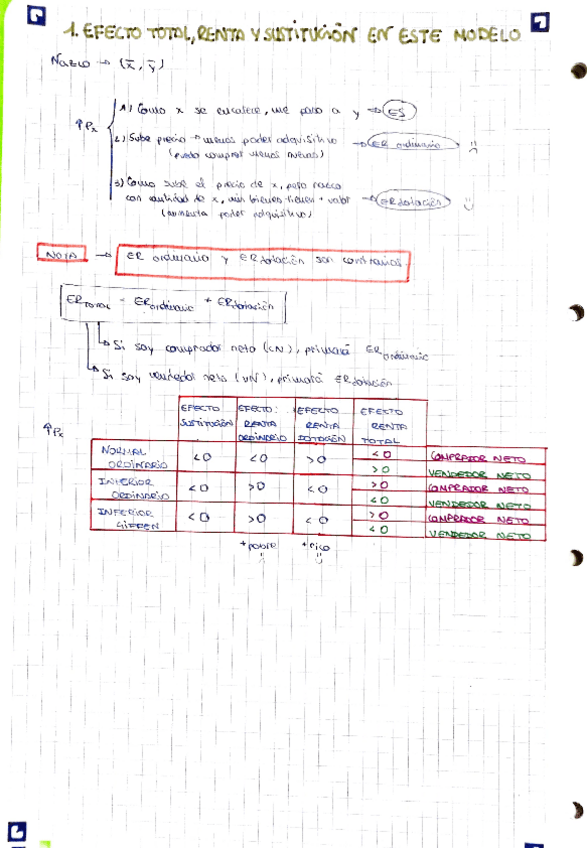 1. EFECTO TOTAL, RENTA Y SUSTITUCIÓN EN ESTE MODELO
Nazco → (x̄, ȳ)
↑Px
1) Como x se encarece, me paso a y → ES
2) Sube precio → menos poder adquisitivo → ER ordinario
(puedo comprar menos)
3) Como sube el precio de x, pero nazco
con cantidad de x, mis bienes tienen + valor → ER dotación
(aumenta poder adquisitivo)
NOTA → ER ordinario y ER dotación son contrarios
ER TOTAL = ER ordinario + ER dotación
Si soy comprador neto (CN), primará ER ordinario
Si soy vendedor neto (VN), primará ER dotación
↑Px
EFECTO SUSTITUCIÓN EFECTO RENTA ORDINARIO EFECTO RENTA DOTACIÓN EFECTO RENTA TOTAL
NORMAL ORDINARIO <0 <0 >0 <0 COMPRADOR NETO
>0 VENDEDOR NETO
INFERIOR ORDINARIO <0 >0 <0 >0 COMPRADOR NETO
<0 VENDEDOR NETO
INFERIOR GIFFEN <0 >0 <0 >0 COMPRADOR NETO
<0 VENDEDOR NETO
+pobre +rico